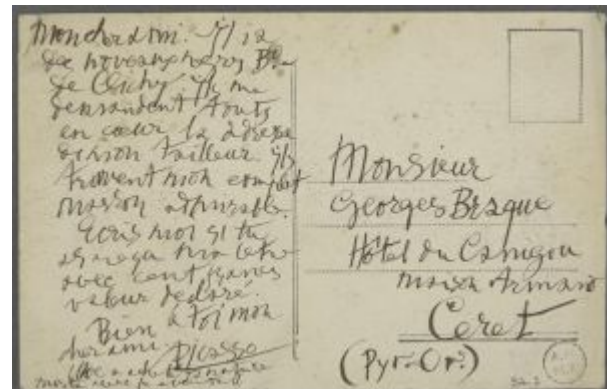 Mon cher ami. Il y a
de nouveaux negres Bd
de Clichy. Ils me
demandent touts
en cœur la adresse
de mon tailleur. Ils
trouvent mon complet
marron admirable.
Ecris moi si tu
as reçu ma lettre
avec cent francs
valeur declaré.
Bien a toi mon
cher ami Picasso
Monsieur
Georges Braque
Hôtel du Canigou
maison Armand
Ceret
(Pyr-Or.)